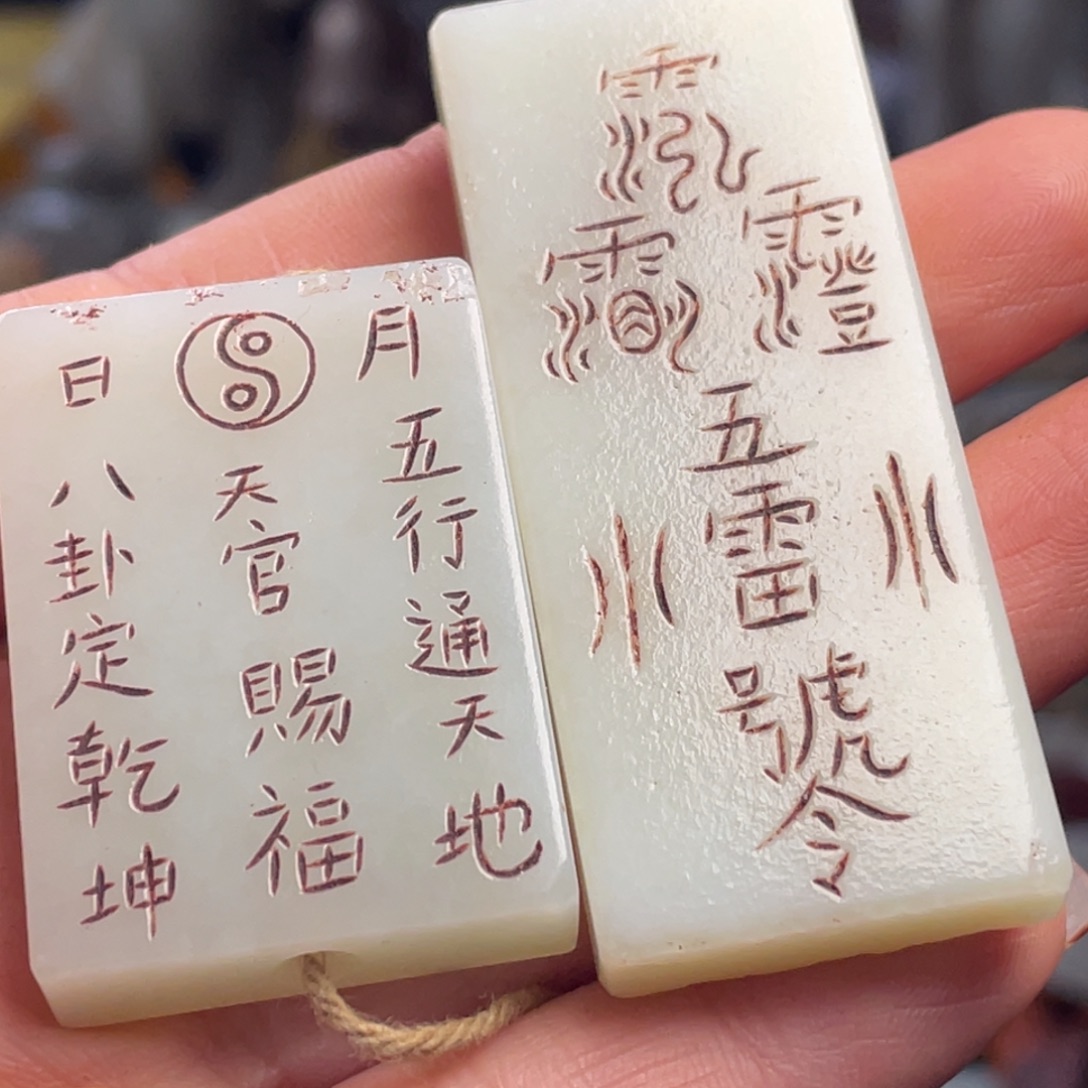 月
五行通天地
天官賜福
日
八卦定乾坤
五雷號令